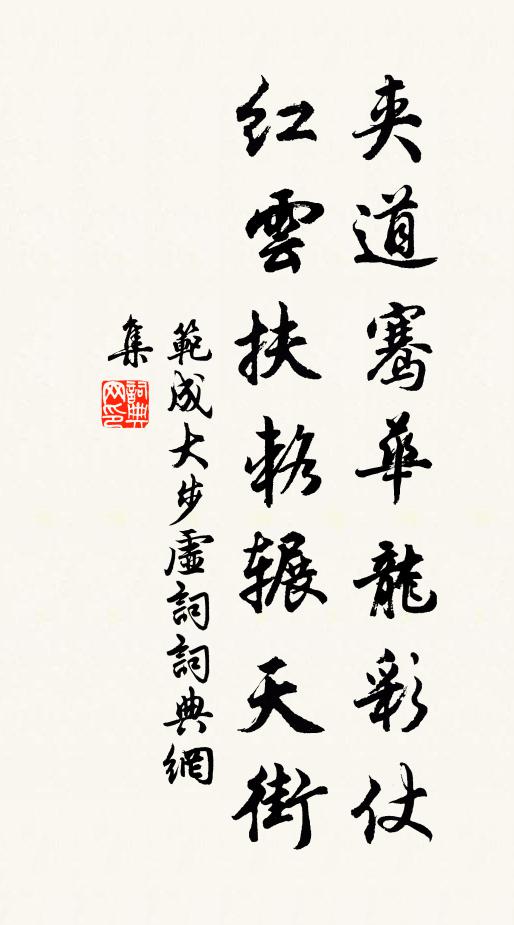 夹道骞華龍彩仗
紅雲扶輅辗天街
範成大步虛詞詞典網
集
詞典網印